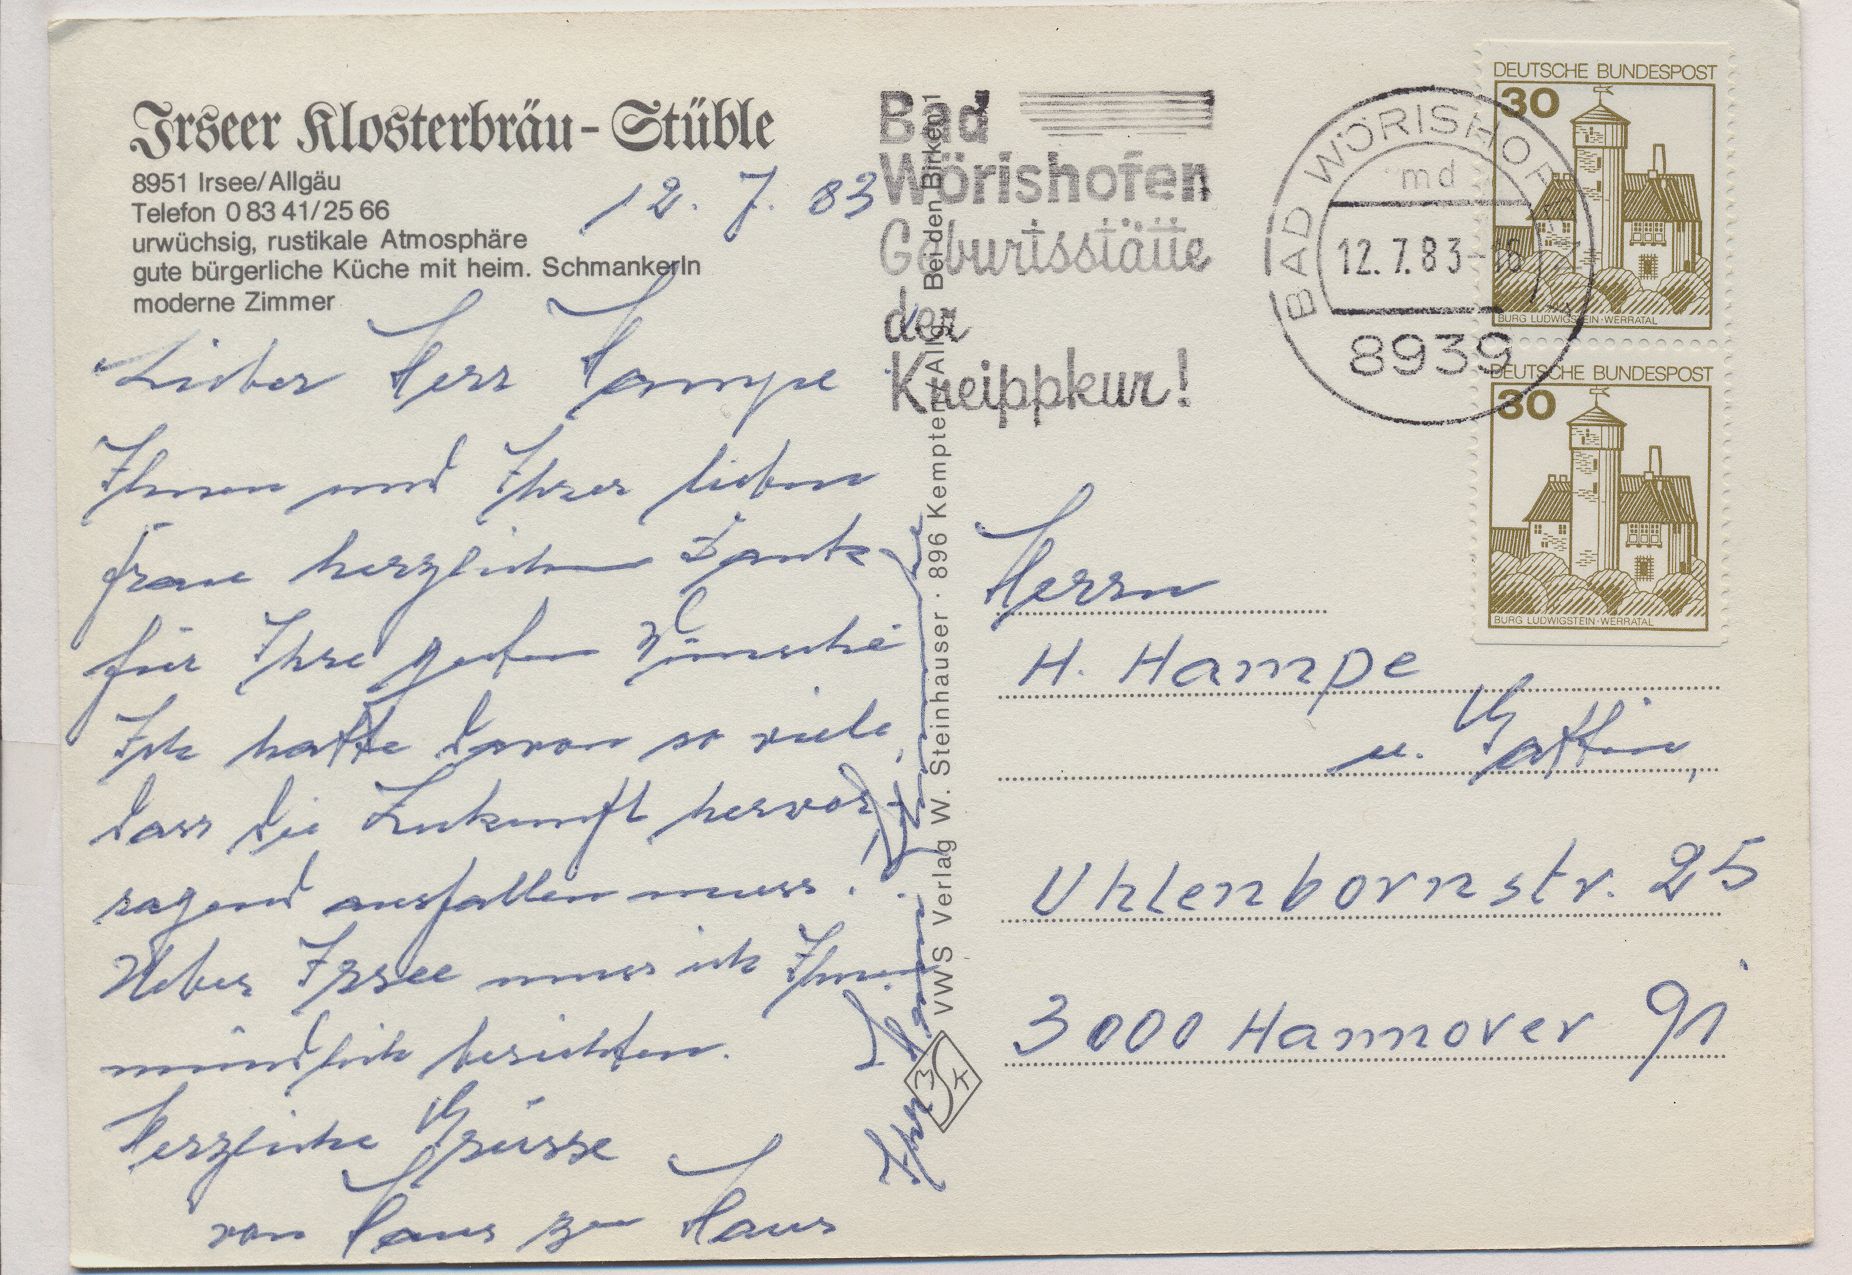 Irseer Klosterbräu-Stüble
8951 Irsee/Allgäu
Telefon 0 83 41/25 66
urwüchsig, rustikale Atmosphäre
gute bürgerliche Küche mit heim. Schmankerln
moderne Zimmer
12. 7. 83
Lieber Herr Hampe
Ihnen und Ihrer lieben
Frau herzlichen Dank
für Ihre guten Wünsche
Ich hatte davon so viele,
dass die Zukunft hervor
ragend ausfallen muss.
Ueber Irsee muss ich Ihnen
mündlich berichten.
Herzliche Grüsse
von Haus zu Haus
Ihr
VWS Verlag W. Steinhauser · 896 Kempten/Allg. Bei den Birken 1
Bad
Wörishofen
Geburtsstätte
der
Kneippkur!
BAD WÖRISHOFEN 1
md
12.7.83-16
8939
DEUTSCHE BUNDESPOST
30
BURG LUDWIGSTEIN-WERRATAL
DEUTSCHE BUNDESPOST
30
BURG LUDWIGSTEIN-WERRATAL
Herrn
H. Hampe
u. Gattin,
Uhlenbornstr. 25
3000 Hannover 91